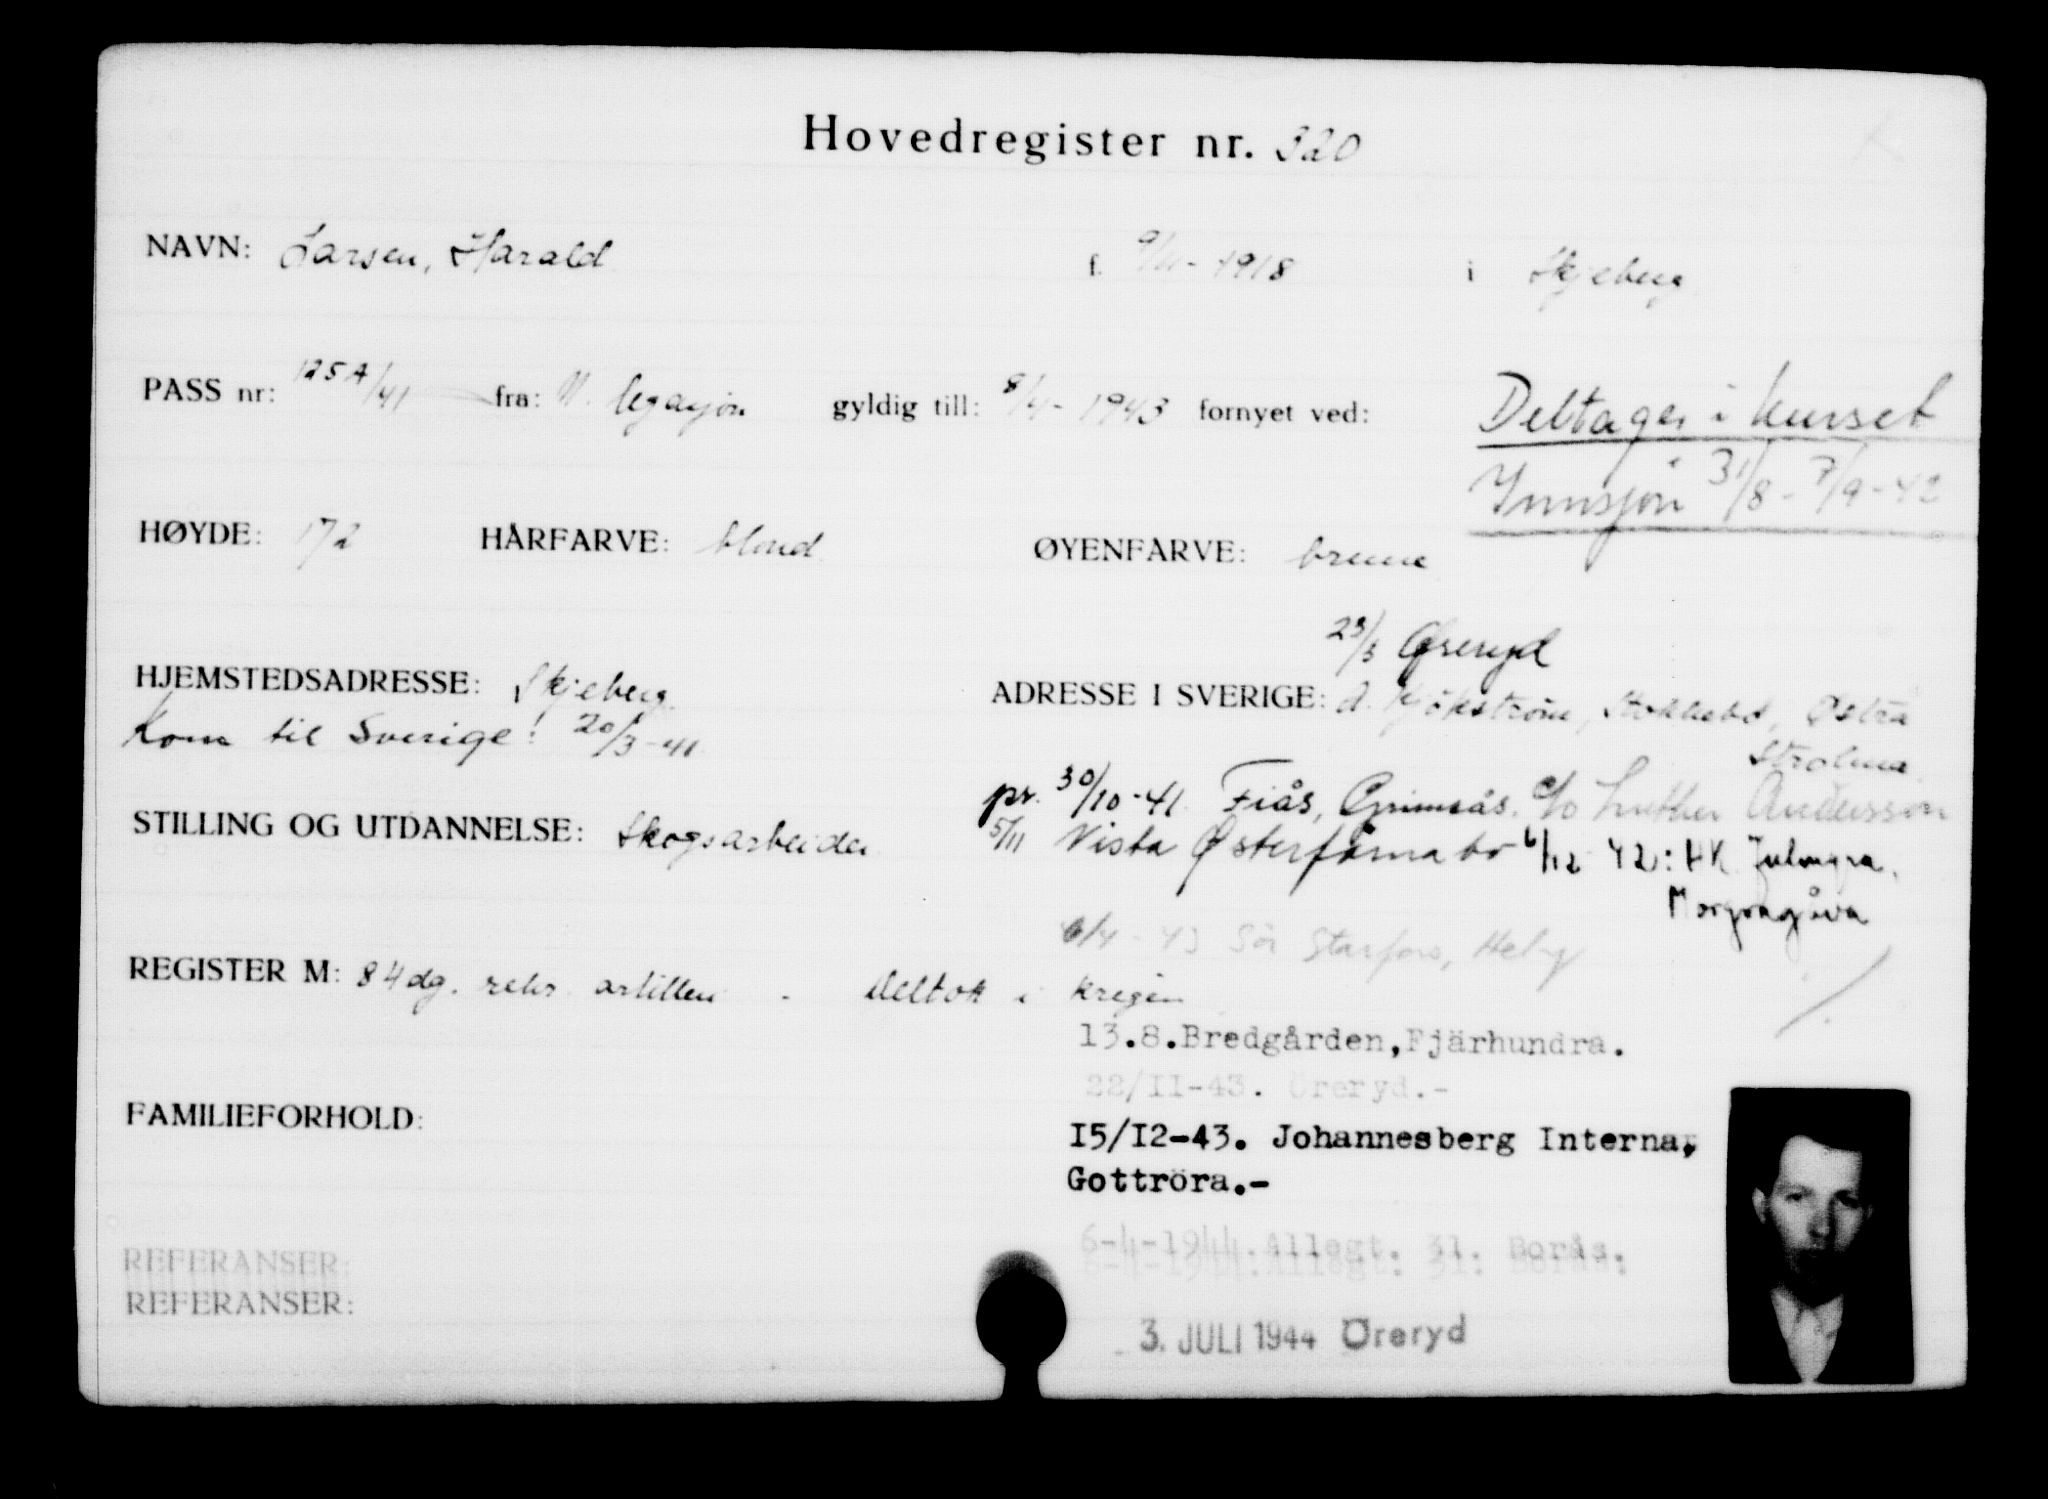 Hovedregister nr. 320
NAVN: Larsen, Harald f. 9/11-1918 i Skjeberg
PASS nr: 125A/41 fra: N. legasjon gyldig till: 8/4-1943 fornyet ved:
Deltager i kurset
Innsjön 31/8-7/9-42
HØYDE: 172 HÅRFARVE: blond ØYENFARVE: brune
23/3 Øreryd
HJEMSTEDSADRESSE: Skjeberg ADRESSE I SVERIGE: Østra
Kom til Sverige: 20/3-41
pr. 30/10-41 Fiås, Grimsås. c/o Luther Andersson
STILLING OG UTDANNELSE: Skogsarbeider 5/11 Nista Østerfärnabo 6/12 42: HK
Morgongåva
6/4-43 Sör Starfors, Heby
REGISTER M: 84 dg. rekr artilleri - Deltok i krigen
13.8.Bredgården,Fjärhundra.
22/II-43. Öreryd.-
FAMILIEFORHOLD:
I5/I2-43. Johannesberg Interna,
Gottröra.-
REFERANSER: 6-4-1944.Allegt. 31. Borås.
REFERANSER:
3. JULI 1944 Öreryd